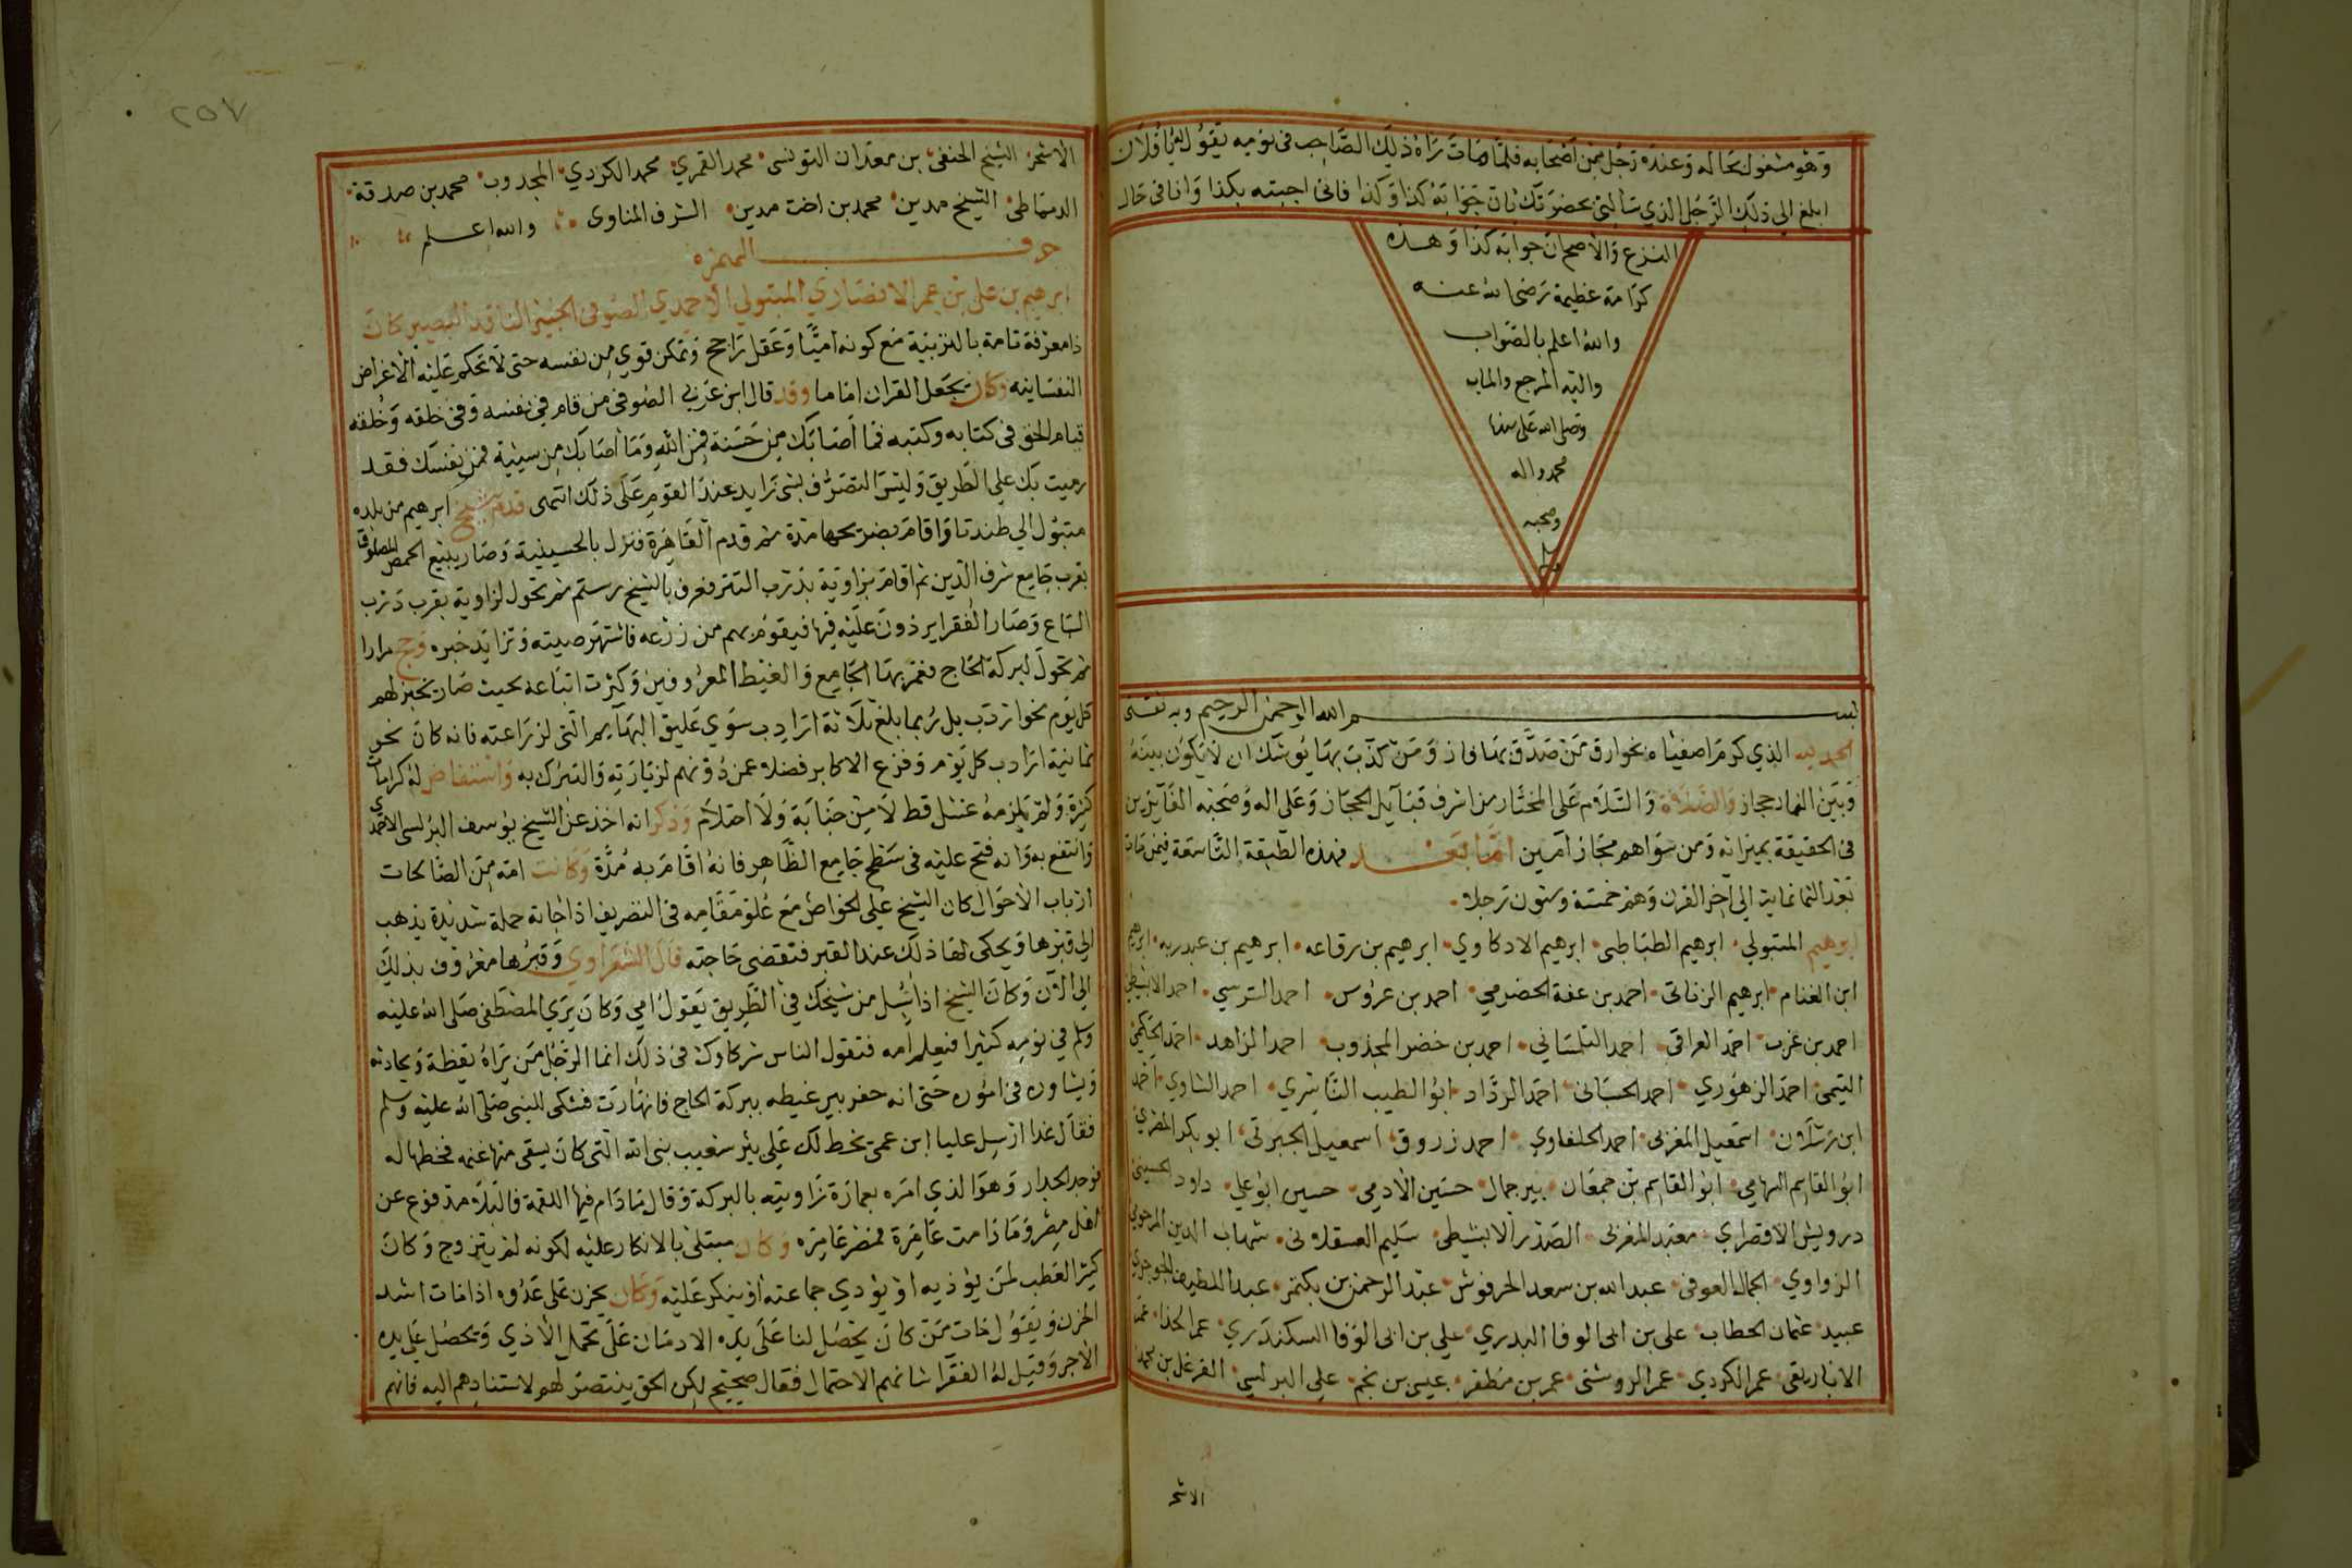 وهو مشغول بحاله وعنده رجل من أصحابه فلما مات راه ذلك الصاحب في نومه يقول له يا فلان
ابلغ الي ذلك الرجل الذي سألني بحضرتك بان جوابه كذا وكذا فاني اجبته بكذا وانا في حال
النزع والاصح ان جوابه كذا وهذه
كرامة عظيمة رضي الله عنه
والله اعلم بالصواب
واليه المرجع والماب
وصلى الله على سيدنا
محمد واله
وصحبه
وسلم
بسم الله الرحمن الرحيم وبه ثقتي
الحمد لله الذي كرم اصفياه بخوارق من صدق بها فاز ومن كذب بها يوشك ان لا يكون بينه
وبين النار حجاز والصلاة والسلام على المختار من اشرف قبايل الحجاز وعلى اله وصحبه الفايزين
في الحقيقة بميزانه ومن سواهم مجاز آمين اما بعد فهذه الطبقة التاسعة فيمن مات
بعد الثمانماية الي آخر القرن وهم خمسة وستون رجلا
ابرهيم المتبولي ابرهيم الطباطبي ابرهيم الادكاوي ابرهيم بن رقاعه ابرهيم بن عبد ربه ابرهيم
ابن الغنام ابرهيم الزناتي احمد بن عفة الحضرمي احمد بن عروس احمد الترسي احمد الابشيطي
احمد بن عرب احمد العراقي احمد التلمساني احمد بن خضر المجذوب احمد الزاهد احمد الحكمي
التيمي احمد الزهوري احمد الحسباني احمد الرداد ابو الطيب الناشري احمد الشاوي احمد
ابن رسلان اسمعيل المغربي احمد الحلفاوي احمد زروق اسمعيل الجبرتي ابو بكر المقري
ابو القاسم السهامي ابو القاسم بن جمعان بير جمال حسين الادمي حسين ابو علي داود الحسيني
درويش الاقصراي معتبد المغربي الصدر الابشيطي سليم العسقلاني شهاب الدين المرحومي
الزواوي الجمال العوفي عبد الله بن سعد الحرفوش عبد الرحمن بن بكتمر عبد اللطيف الجوجري
عبيد عثمان الحطاب علي بن ابي الوفا البدري علي بن ابي الوفا السكندري عمر الحذا عمر
الانبارتقي عمر الكردي عمر الروشني عمر بن مظفر عيسى بن نجم علي البرلسي الفرغل بن احمد
الاشمر
الاشمر الشيخ الحنفي بن معدان التونسي محمد القمري محمد الكردي المجدوب محمد بن صدقة
الدمياطي الشيخ مدين محمد بن اخت مدين الشرف المناوي والله اعلم
حرف الهمزة
ابرهيم بن علي بن عمر الانصاري المتبولي الاحمدي الصوفي الجنيز الناقد البصير كان
ذا معرفة تامة بالتربية مع كونه اميا وعقل راجح وتمكن قوي من نفسه حتى لا تحكم عليه الاغراض
النفسانيه وكان يجعل القران اماما وقد قال ابن عربي الصوفي من قام في نفسه وفي خلقه وخلقه
قيام الحق في كتابه وكتبه فما أصابك من حسنة فمن الله وما أصابك من سيئة فمن نفسك فقد
رميت بك علي الطريق وليس التصوف بشي زايد عند القوم على ذلك انتهى قدم الشيخ ابرهيم من بلده
متبول الي طندتا واقام بضريحها مدة ثم قدم القاهرة فنزل بالحسينية وصار يبيع الحمص المصلوق
بقرب جامع شرف الدين ثم اقام بزاوية بدرب التتر فعرف بالشيخ رستم ثم تحول لزاوية بقرب درب
السباع وصار الفقرا يردون عليه فيها فيقوم بهم من زرعه فاشتهر صيته وتزايد خبره وحج مرارا
ثم تحول لبركة الحاج فعمر بها الجامع والغيط المعروفين وكثرت اتباعه بحيث صار يخبز لهم
كل يوم نحو اردب بل ربما بلغ ثلاثة ارادب سوي عليق البهايم التي لزراعته فانه كان نحو
ثمانية ارادب كل يوم وفزع الاكابر فضلا عمن دونهم لزيارته والتبرك به واستفاض له كرامات
كثيرة ولم يلزمه غسل قط لا من جنابة ولا احتلام وذكر انه اخذ عن الشيخ يوسف البرلسي الاحمدي
وانتفع به وانه فتح عليه في سطح جامع الظاهر فانه اقام به مدة وكانت امه من الصالحات
ارباب الاحوال كان الشيخ علي الخواص مع علو مقامه في التصريف اذا جاته حملة شديدة يذهب
الي قبرها ويحكي لها ذلك عند القبر فتقضى حاجته قال الشعراوي وقبرها معروف بذلك
الي الآن وكان الشيخ اذا سئل من شيخك في الطريق يقول امي وكان يري المصطفى صلى الله عليه
وسلم في نومه كثيرا فيعلم امه فتقول الناس شركاوك في ذلك انما الرجل من يراه يقظة ويحادثه
ويشاوره في اموره حتى انه حفر بير غيطه ببركة الحاج فانهارت فشكى للنبي صلى الله عليه وسلم
فقال غدا ارسل عليا ابن عمي يخط لك علي بئر شعيب نبي الله التي كان يسقي منها غنمه فخطها له
فوجد الجدار وهو الذي امره بعمارة زاويته بالبركة وقال ما دام فيها اللقمة فالبلا مدفوع عن
اهل مصر وما دامت عامرة فمصر عامره وكان مبتلى بالانكار عليه لكونه لم يتزوج وكان
كثير العطب لمن يؤذيه او يؤدي جماعته او ينكر عليه وكان يحزن على عدوه اذا مات اشد
الحزن ويقول مات من كان يحصل لنا على يده الادمان على تحمل الاذي وتحصل علي يده
الاجر وقيل له الفقرا شانهم الاحتمال فقال صحيح لكن الحق ينتصر لهم لاستنادهم اليه فانهم
٢٥٧